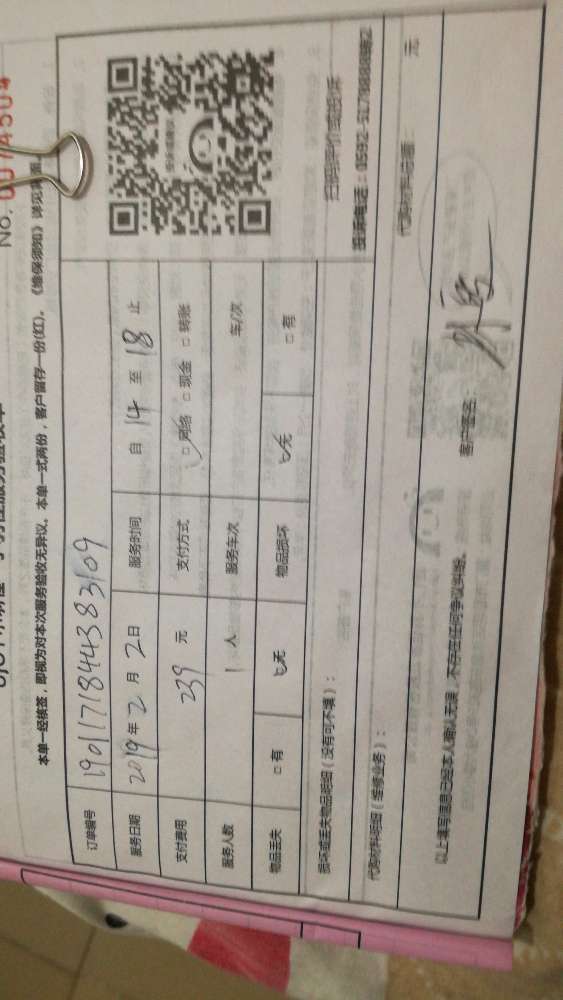 No. 0074504
本单一经核签，即视为对本次服务验收无异议。本单一式两份，客户留存一份(红)。《维保须知》详见背面。
订单编号 190117184438 3109
服务日期 2019年2月2日 服务时间 自 14 至 18 止
支付费用 239 元 支付方式 ☑网络 □现金 □转账
服务人数 1 人 服务车次 车/次
物品丢失 □有 ☑无 物品损坏 ☑无 □有
损坏或丢失物品明细(没有可不填)：
扫码评价或投诉
代购材料明细(维修业务)：
代购材料总额： 元
以上填写信息已经本人确认无误，不存在任何争议纠纷。
客户签名：